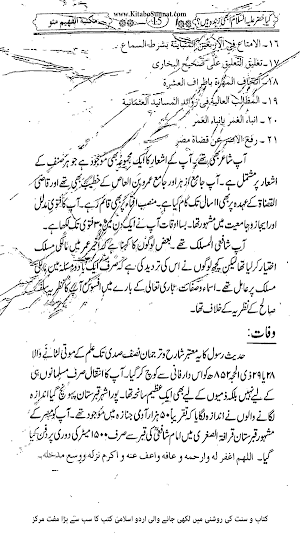 www.KitaboSunnat.com
کیا خضر علیہ السلام ابھی زندہ ہیں؟ 15 مکتبۃ الفہیم مئو
۱۶۔ الامتاع فی الاربعین المتباینة بشرط السماع۔
۱۷۔ تغلیق التعلیق علی صحیح البخاری
۱۸۔ اتحاف المهرة باطراف العشرة
۱۹۔ المطالب العالية فی زوائد المسانید الثمانیة
۲۰۔ انباء الغمر بانباء العمر
۲۱۔ رفع الاصر عن قضاة مصر
آپ شاعر بھی تھے آپ کے اشعار کا ایک مجموعہ بھی موجود ہے جو ہر صنف کے
اشعار پر مشتمل ہے۔ آپ جامع ازہر اور جامع عمرو بن العاص کے خطیب بھی تھے اور قاضی
القضاۃ کے عہدہ پر سال تک کام کیا ہے۔ منصب افتاء پر بھی قائم رہے۔ آپ کا فتوی مدلل
اور ایجاز و جامعیت میں مشہور تھا۔ بسا اوقات آپ نے ایک دن میں ۳۰ فتوی تک لکھا ہے۔
آپ شافعی المسلک تھے۔ بعض لوگوں کا کہنا ہے کہ اخیر عمر میں مالکی مسلک
اختیار کر لیا تھا لیکن کچھ لوگوں نے اس کی تردید کی ہے کہ صرف ایک یا دو مسئلہ میں مالکی
مسلک پر عامل تھے۔ اسماء و صفات باری تعالی کے بارے میں افسوس آپ کا نظریہ سلف
صالح کے نظریہ کے خلاف تھا۔
وفات:
حدیث رسول کا یہ معتبر شارح و ترجمان نصف صدی تک علم کے موتی لٹانے والا
۲۸ یا ۲۹ ذی الحجہ ۸۵۲ھ کو اس دار فانی سے کوچ کر گیا۔ آپ کا انتقال صرف مسلمانوں ہی
کے لیے نہیں بلکہ ذمیوں کے لیے بھی ایک عظیم سانحہ تھا۔ پورا شہر قبرستان پہونچ گیا اندازہ
لگانے والوں نے اندازہ لگایا کہ تقریباً ۵۰ ہزار آدمی جنازہ میں موجود تھے۔ آپ کو مصر کے
مشہور قبرستان قرافۃ الصغری میں امام شافعی کی قبر سے صرف ۱۵۰۰ میٹر کی دوری پر دفن کیا
گیا۔ اللهم اغفر له وارحمه و عافه واعف عنه و اکرم نزله ووسع مدخله۔
کتاب و سنت کی روشنی میں لکھی جانے والی اردو اسلامی کتب کا سب سے بڑا مفت مرکز